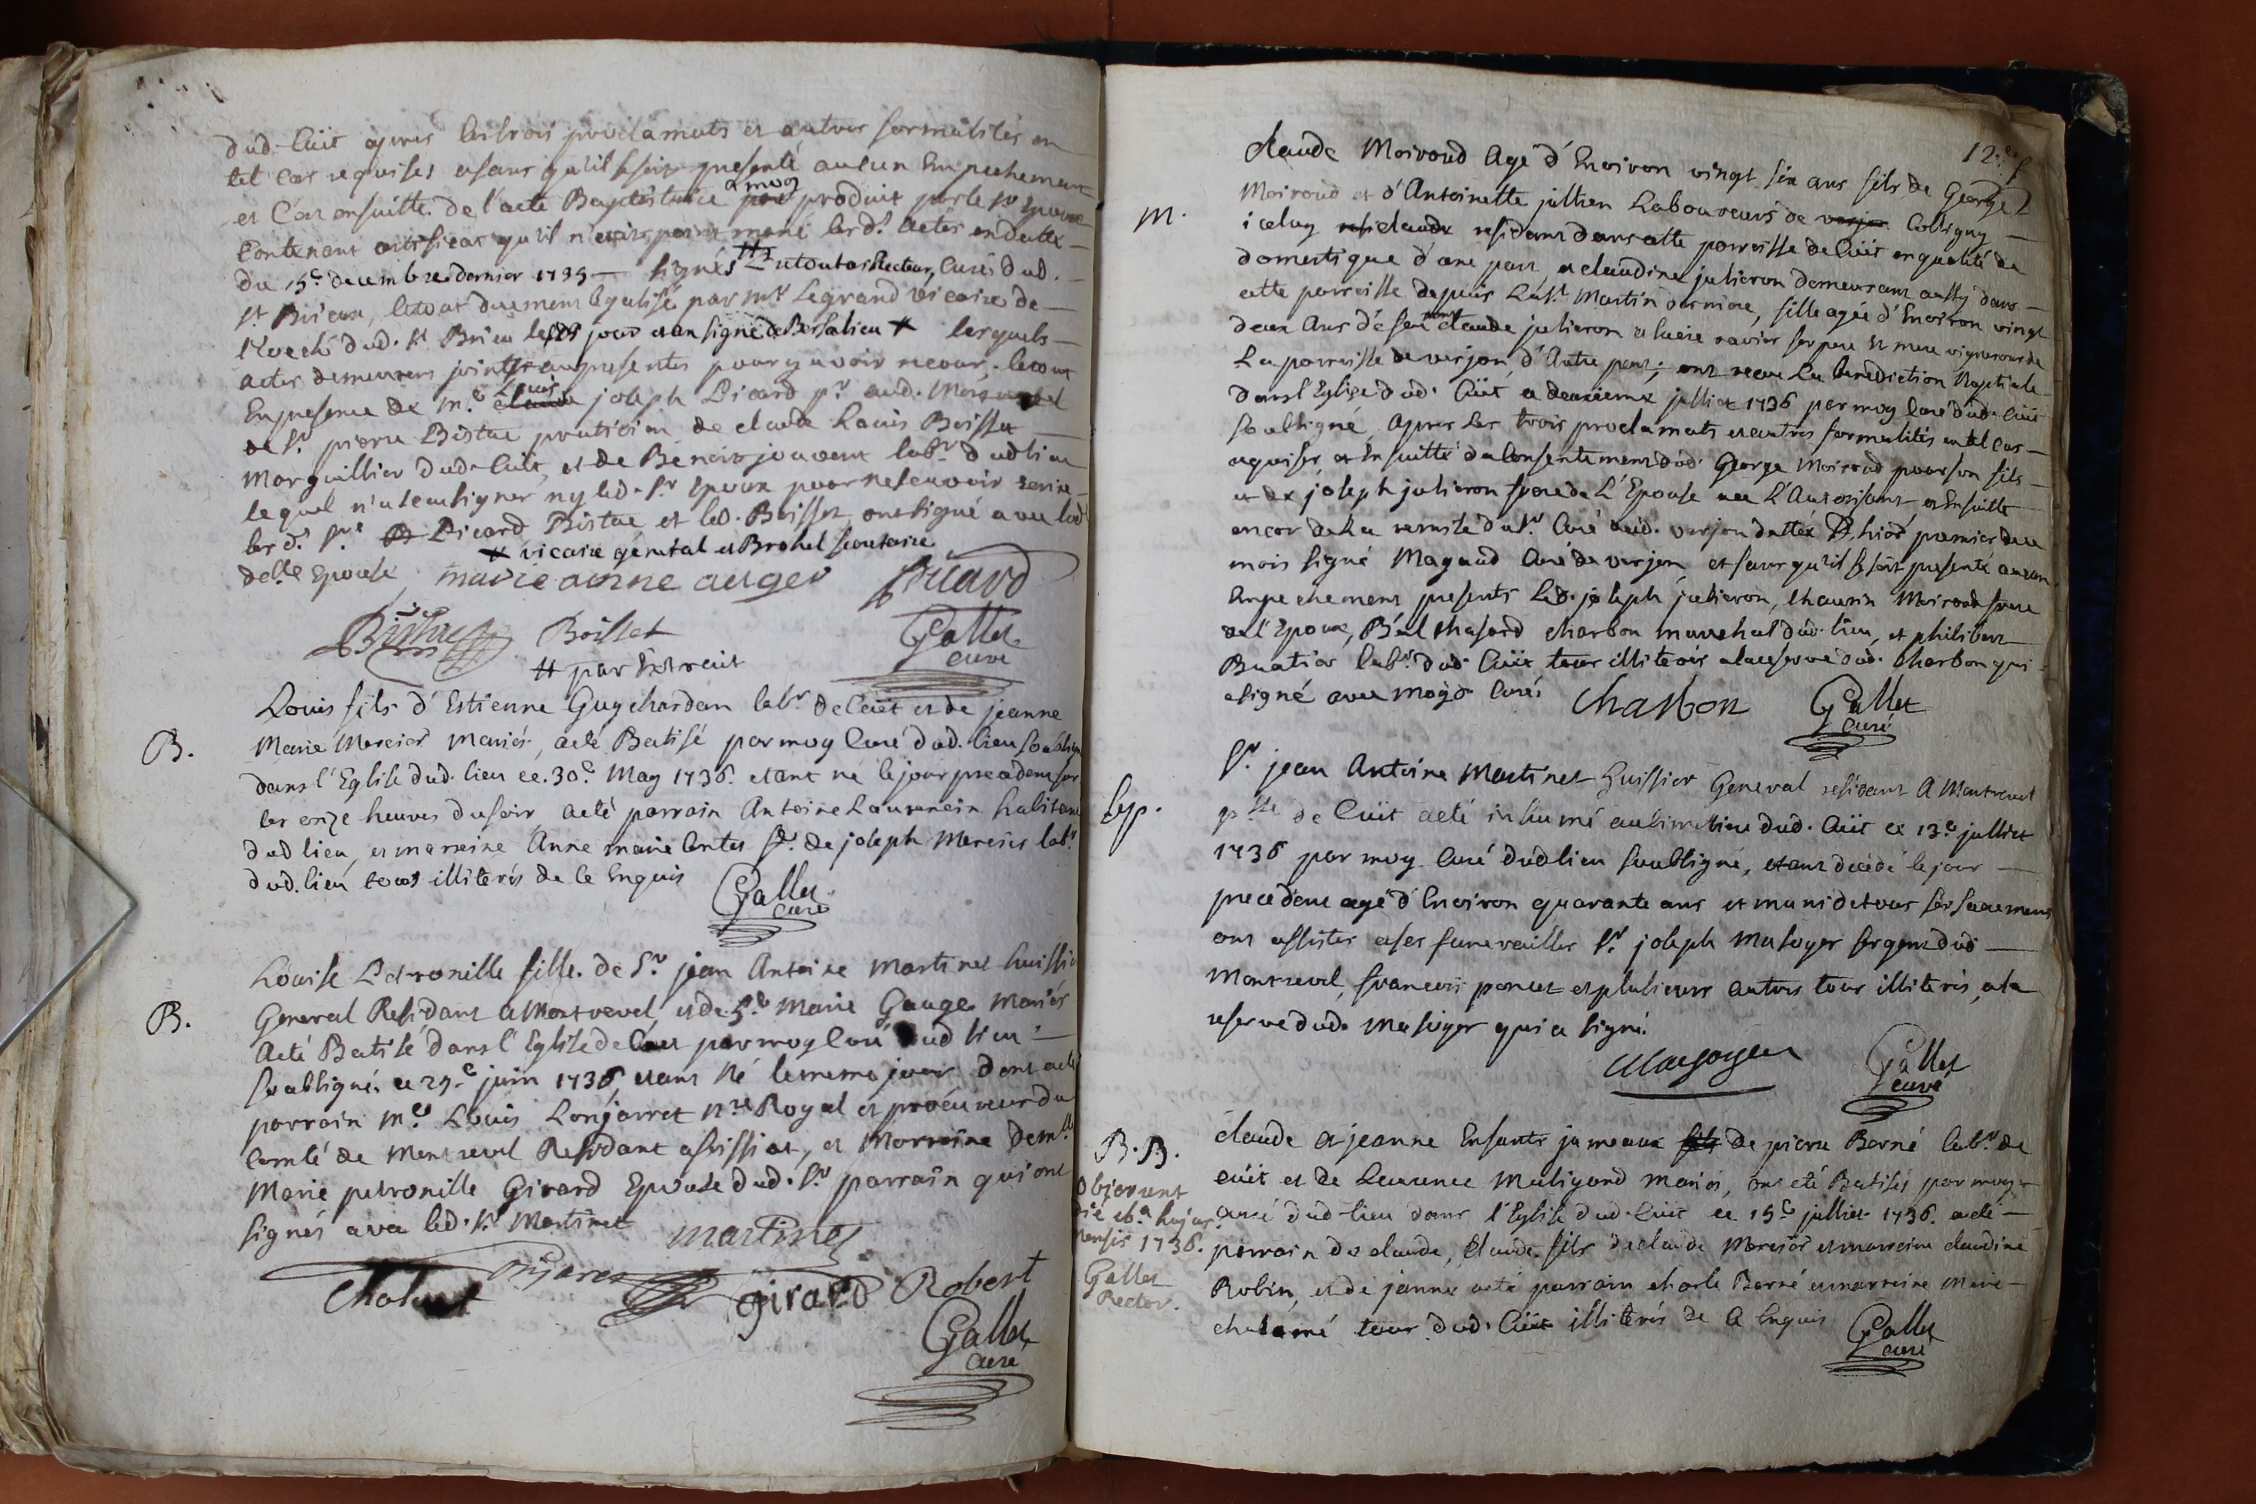 dud. Cuit apres les trois proclamats et autres formalités en
tel cas requises et sans qu'il se soit presenté aucun Empechement
et C'an ensuitte de l'acte Baptistaire a moy produit par le Sr Epoux
Contenant certificat qu'il n'etoit point marié lesd. actes en datte
du 15e decembre dernier 1735 signés Recteur, Curé dud.
St Brieux, le tout duement legalisé par Mr Legrand vicaire de
l'Eveché dud. St Brieu lesd. jour et an signé de Bersalieu # lesquels
actes demeurent joints aux presentes pour y avoir recour, le tout
En presence de Me Louis joseph Picard pr aud. Montrevel
de Sr pierre Bistac praticien de claude Louis Boisset
Marguillier dud. Cuit, et de Benoit jouvent labr dud lieu
lequel n'a sceu signer ny led. Sr Epoux pour ne scavoir ecrire
les d. Srs Picard Bistac et led. Boisset ont signé avec lad.
# vicaire général et Brohel secretaire
delle Epouse marie anne auger Picard
Bistac Boisset Gallet
curé
# par Extrait
Louis fils d'Estienne Guychardan labr de Cuit et de jeanne
B. Marie Mercier mariés, a eté Batisé par moy Curé dud. lieu soubsigné
dans l'Eglise dud. lieu ce 30e May 1736. etant né le jour precedent sur
les onze heures du soir a eté parrain Antoine Laurencin habitant
dud lieu, et marreine Anne marie Antes fe de joseph Mercier labr
dud. lieu tous illiterés de ce Enquis Gallet
curé
Louise Petronille fille de Sr jean Antoine Martinet huissier
B. General Residant a Montrevel et de De Marie Gauge Mariés
a eté Batisé dans l'Eglise de Cuit par moy Curé dud lieu
soubsigné ce 29e juin 1736, etant né le meme jour dont a eté
parrain Me Louis Lonjarret Nre Royal et procureur du
Comté de Montrevel Residant assissiat, et Marreine Demlle
Marie petronille Girard Epouse dud. Sr parrain qui ont
signés avec led. Sr Martinet Martinet
Chalaut Lonjarret girard Robert
Gallet
curé
12e f
claude Moiroud Agé d'Environ vingt six ans fils de George
M. Moiroud et d'Antoinette jullien Laboureurs de Colligny
iceluy residant dans cette parroisse de Cuit en qualité de
domestique d'une part, et claudine julieron demeurant aussy dans
cette parroisse depuis La St Martin derniere, fille agée d'Environ vingt
deux Ans de feu claude julieron et lucie ravier ses pere et mere vignerons de
La parroisse de verjon d'Autre part; ont recu La benediction Nuptiale
dans l'Eglise dud. Cuit ce deuxieme julliet 1736 par moy Curé dud. Cuit
soubsigné apres Les trois proclamats et autres formalités en tel cas
requises et En suitte du Consentement dud. George Moiroud pour son fils
et de joseph julieron frere de L'Epouse icy L'Autorisant, et En suitte
encor de La remise du Sr Curé dud. verjon dattée d'hier premier de ce
mois signé Magaud Curé de verjon, et sans qu'il se soit presenté aucun
Empechement presents Led. joseph julieron, thaurin Moiroud frere
de l'Epoux, charbon marechal dud. lieu, et philibert
Buatier labr dud. Cuit tous illiterés a la reserve dud. Charbon qui
a signé avec moyd. Curé Charbon Gallet
curé
Sr jean Antoine Martinet huissier General residant A Montrevel
Sep. psse de Cuit a eté inhumé au Cimetiere dud. Cuit ce 13e julliet
1736 par moy Curé dud lieu soubsigné, etant decedé le jour
precedent agé d'Environ quarante ans et muni de tous ses Sacremens
ont assistés a ses funerailles Sr joseph Masoyer sergent dud
Montrevel, francois poncet et plusieurs autres tous illiterés, a la
reserve dud. Masoyer qui a signé.
Masoyer Gallet
curé
B. B. claude et jeanne Enfants jumeaux de pierre Borné labr de
cuit et de Laurence Maligand mariés, ont eté Batisés par moy
curé dud lieu dans l'Eglise dud. Cuit ce 15e julliet 1736. a eté
parrain de claude, claude fils de claude Mercier et marreine claudine
Robin, et de jeanne a eté parrain charle Borné et marreine Marie
chalamé tous dud. Cuit illiterés de ce Enquis Gallet
curé
Obierunt
die 16a hujus
mensis 1736.
Gallet
Rector.